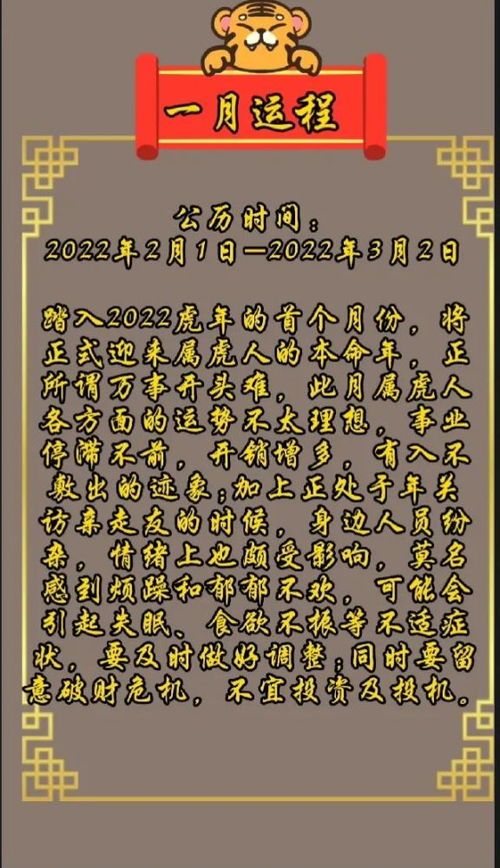 一月运程
公历时间：
2022年2月1日—2022年3月2日
踏入2022虎年的首个月份，将
正式迎来属虎人的本命年，正
所谓万事开头难，此月属虎人
各方面的运势不太理想，事业
停滞不前，开销增多，有入不
敷出的迹象;加上正处于年关
访亲走友的时候，身边人员纷
杂，情绪上也颇受影响，莫名
感到烦躁和郁郁不欢，可能会
引起失眠、食欲不振等不适症
状，要及时做好调整;同时要留
意破财危机，不宜投资及投机。